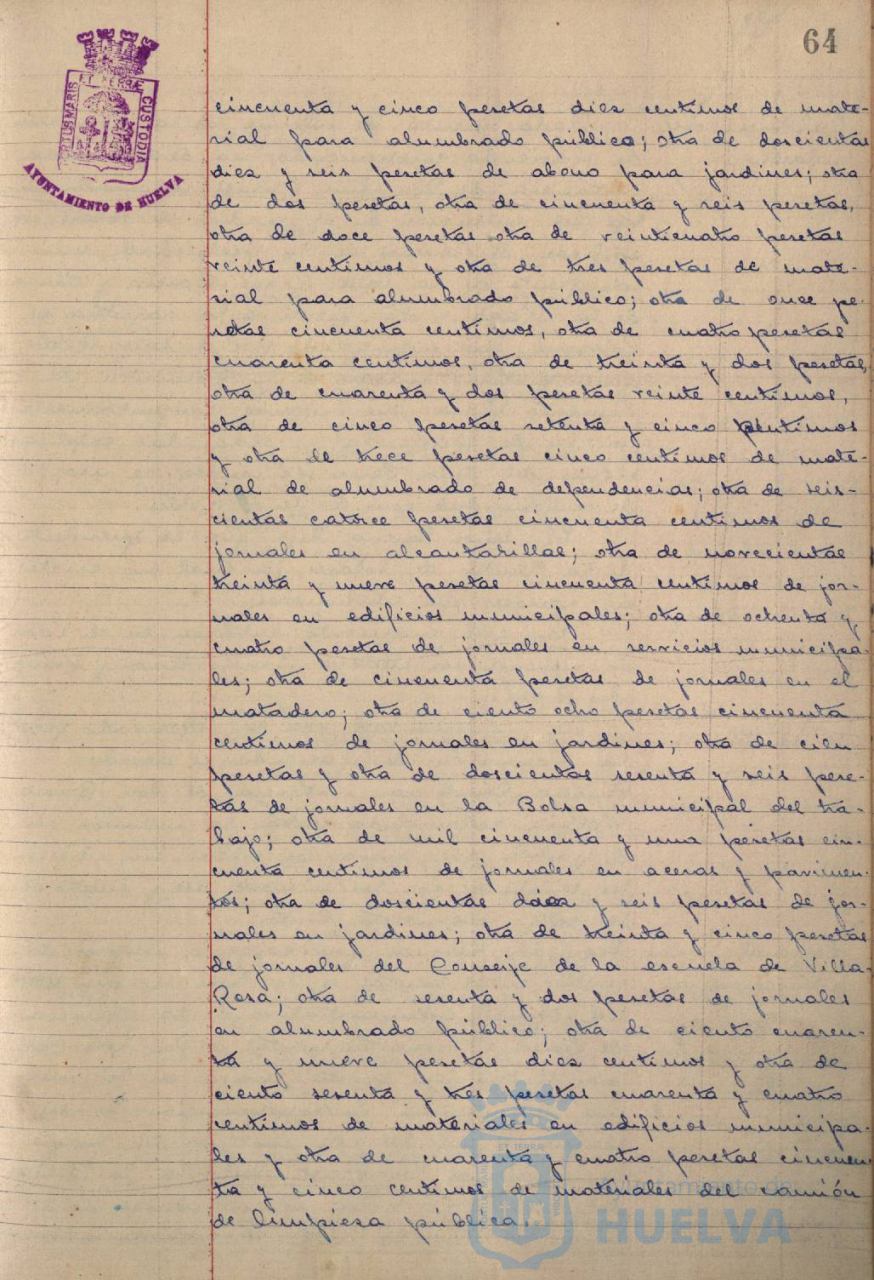 64
PORTUS MARIS ET TERRÆ CUSTODIA
AYUNTAMIENTO DE HUELVA
cincuenta y cinco pesetas diez centimos de mate-
rial para alumbrado público; otra de doscientas
diez y seis pesetas de abono para jardines; otra
de dos pesetas, otra de cincuenta y seis pesetas,
otra de doce pesetas otra de veinticuatro pesetas
veinte centimos y otra de tres pesetas de mate-
rial para alumbrado público; otra de once pe-
setas cincuenta centimos, otra de cuatro pesetas
cuarenta centimos, otra de treinta y dos pesetas,
otra de cuarenta y dos pesetas veinte centimos,
otra de cinco pesetas setenta y cinco centimos
y otra de trece pesetas cinco centimos de mate-
rial de alumbrado de dependencias; otra de seis-
cientas catorce pesetas cincuenta centimos de
jornales en alcantarillas; otra de novecientas
treinta y nueve pesetas cincuenta centimos de jor-
nales en edificios municipales; otra de ochenta y
cuatro pesetas de jornales en servicios municipa-
les; otra de cincuenta pesetas de jornales en el
matadero; otra de ciento ocho pesetas cincuenta
centimos de jornales en jardines; otra de cien
pesetas y otra de doscientas sesenta y seis pese-
tas de jornales en la Bolsa municipal del tra-
bajo; otra de mil cincuenta y una pesetas cin-
cuenta centimos de jornales en aceras y pavimen-
tos; otra de doscientas diez y seis pesetas de jor-
nales en jardines; otra de treinta y cinco pesetas
de jornales del Conserje de la escuela de Villa-
Rosa; otra de sesenta y dos pesetas de jornales
en alumbrado público; otra de ciento cuaren-
ta y nueve pesetas diez centimos y otra de
ciento sesenta y tres pesetas cuarenta y cuatro
centimos de materiales en edificios municipa-
les y otra de cuarenta y cuatro pesetas cincuen-
ta y cinco centimos de materiales del camión
de limpiesa pública.
Ayuntamiento de
HUELVA